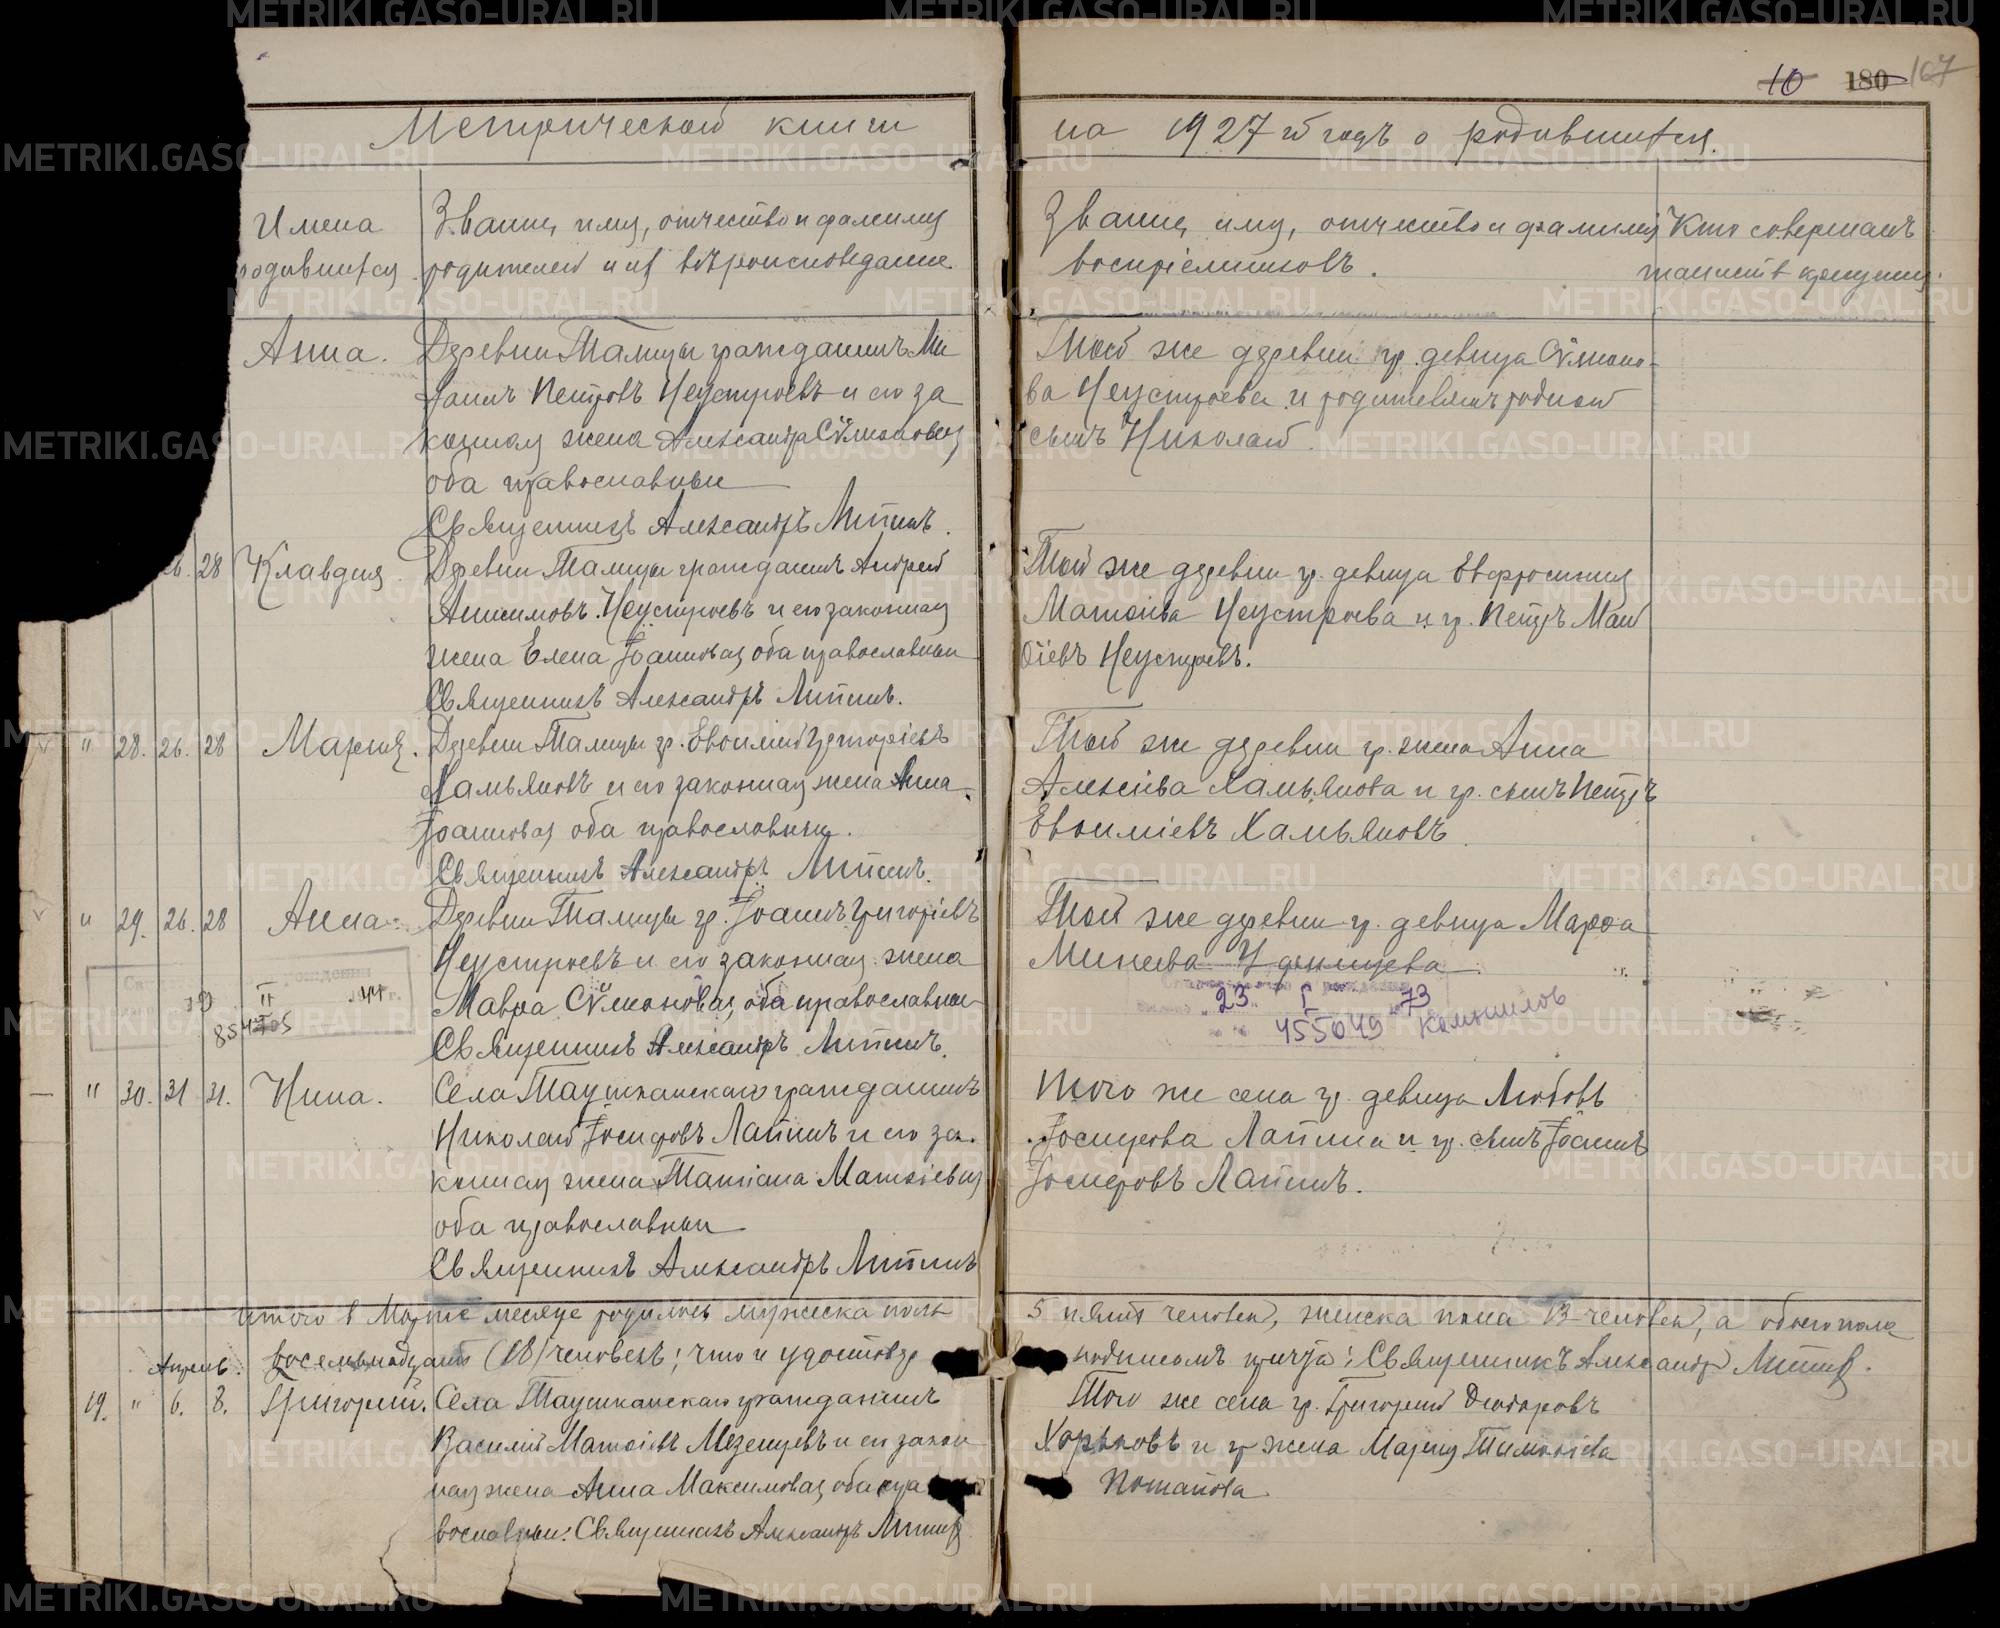 Метрической книги
на 1927 й годъ о родившихся.
10 180 167
Имена
родившихся
Званіе, имя, отчество и фамилия
родителей и их вѣроисповедание
Званіе, имя, отчество и фамилия
воспріемниковъ.
Кто совершалъ
таинств крещения
Анна.
Деревни Талицы гражданинъ
Петровъ Неустроевъ и его за
конная жена Александра Сѵмоновая
оба православныи
Священникъ Александръ Липинъ.
Той же деревни гр. девица Сѵмоно-
ва Неустроева и родной
сынъ Николай.
26. 28 Клавдия.
Деревни Талицы гражданинъ Андрей
Анисимовъ Неустроевъ и его законная
жена Елена Іоанновая, оба православныи
Священникъ Александръ Липинъ.
Той же деревни гр. девица Евфросиния
Матѳіева Неустроева и гр. Петръ Мат
ѳіевъ Неустроевъ.
" 28. 26. 28 Мария.
Деревни Талицы гр. Евѳимій Григоріевъ
Хамьяновъ и его законная жена Анна
Іоанновая, оба православныи.
Священникъ Александръ Липинъ.
Той же деревни гр. жена Анна
Алексіева Хамьянова и гр. сынъ Петръ
Евѳиміевъ Хамьяновъ.
" 29. 26. 28 Анна.
Деревни Талицы гр. Іоаннъ Григоріевъ
Неустроевъ и его законная жена
Мавра Сѵмоновая, оба православныи
Священникъ Александръ Липинъ.
Той же деревни гр. девица Марѳа
Минеева
II 44
23 73
455049
" 30. 31 31. Нина.
Села Таушканскаго гражданинъ
Николай Іосифовъ Лапинъ и его за-
конная жена Татіана Матѳіевая
оба православныи
Священникъ Александръ Липинъ
Того же села гр. девица Любовь
Іосифова Лапина и гр. сынъ Іоаннъ
Іосифовъ Лапинъ.
итого в Марте месяце родилось мужеска пола
5 пять человек, женска пола 13 человек, а обоего пола
восемьнадцать (18) человекъ; что и удостовер
подписомъ причта: Священникъ Александр Липин.
Апрель.
19. " 6. 8. Григорий.
Села Таушканскаго гражданинъ
Василій Матѳіевъ Мезенцевъ и его закон
ная жена Анна Максимовая, оба пра
вославныи: Священникъ Александръ Липин
Того же села гр. Григорий Диодоровъ
Хорьковъ и гр жена Мария Тимоѳіева
Потапова.
METRIKI.GASO-URAL.RU